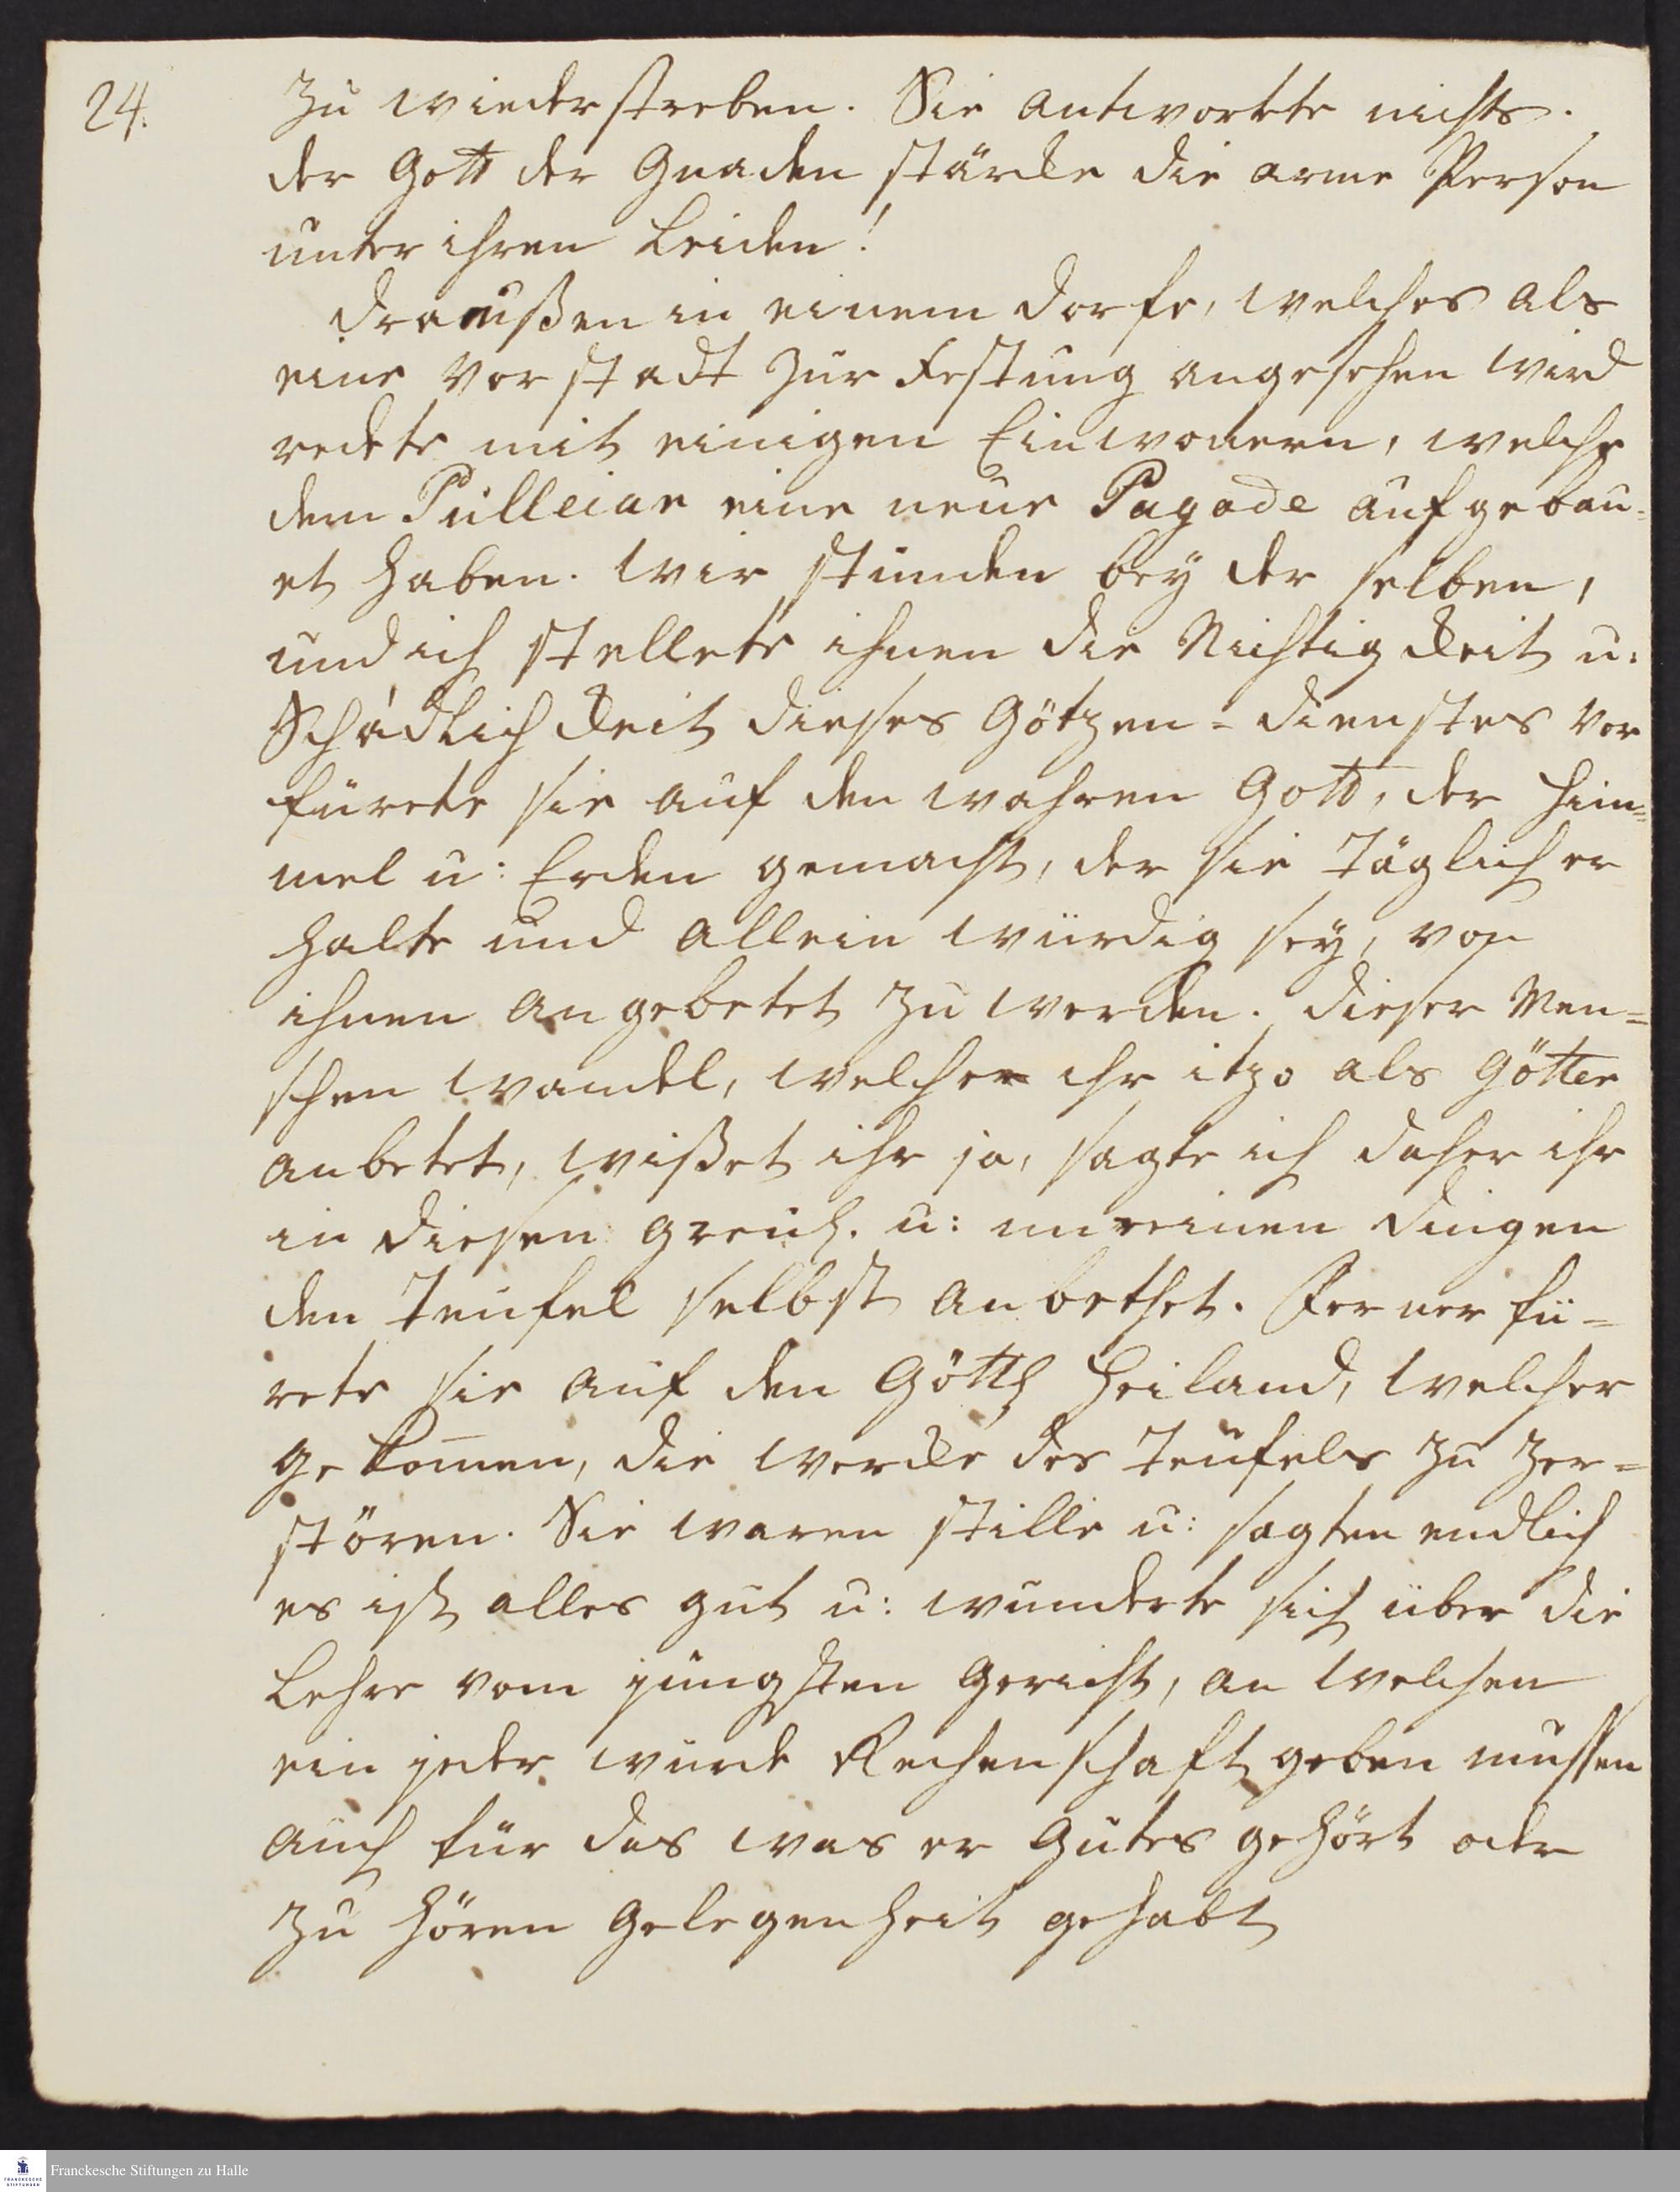 24.
zu wiederstreben. Sie antwortete nichts.
der Gott der Gnaden stärcke die arme Person
unter ihren Leiden!
Draußen in einem Dorfe, welches als
eine Vorstadt zur Festung angesehen wird
redete mit einigen Einwonern, welche
dem Pulleiar eine neue Pagode aufgebau-
et haben. Wir stunden bey der selben,
und ich stellete ihnen die Nichtigkeit u:
Schädlichkeit dieses Götzen-dienstes vor
fürete sie auf den wahren Gott, der Him=
mel u: Erden gemacht, der sie täglich er
halte und allein würdig sey, von
ihnen angebetet zu werden. Dieser Men=
schen wandel, welche ihr itzo als Götter
anbetet, wißet ihr ja, sagte ich daher ihr
in diesen greul. u: unreinen Dingen
den Teufel selbst anbethet. Ferner fü=
rete sie auf den Göttl Heiland, welcher
gekom̄en, die wercke des Teufels zu zer=
stören. Sie waren stille u: sagten endlich
es ist alles gut u: wunderte sich über die
Lehre vom jüngsten Gericht, an welchen
ein jeder wurde Rechenschaft geben mussen
auch für das was er Gutes gehört oder
zu hören Gelegenheit gehabt
Franckesche Stiftungen zu Halle